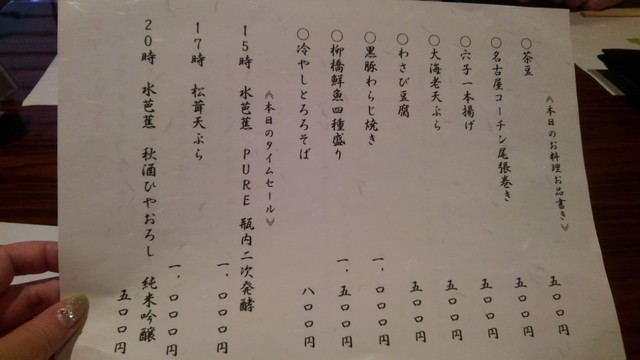 ≪本日のお料理お品書き≫
○茶豆 五〇〇円
○名古屋コーチン尾張巻き 五〇〇円
○穴子一本揚げ 五〇〇円
○大海老天ぷら 五〇〇円
○わさび豆腐 五〇〇円
○黒豚わらじ焼き 一.〇〇〇円
○柳橋鮮魚四種盛り 一.五〇〇円
○冷やしとろろそば 八〇〇円
≪本日のタイムセール≫
15時 水芭蕉 PURE 瓶内二次発酵 一.〇〇〇円
17時 松茸天ぷら 一.〇〇〇円
20時 水芭蕉 秋酒ひやおろし 純米吟醸 五〇〇円